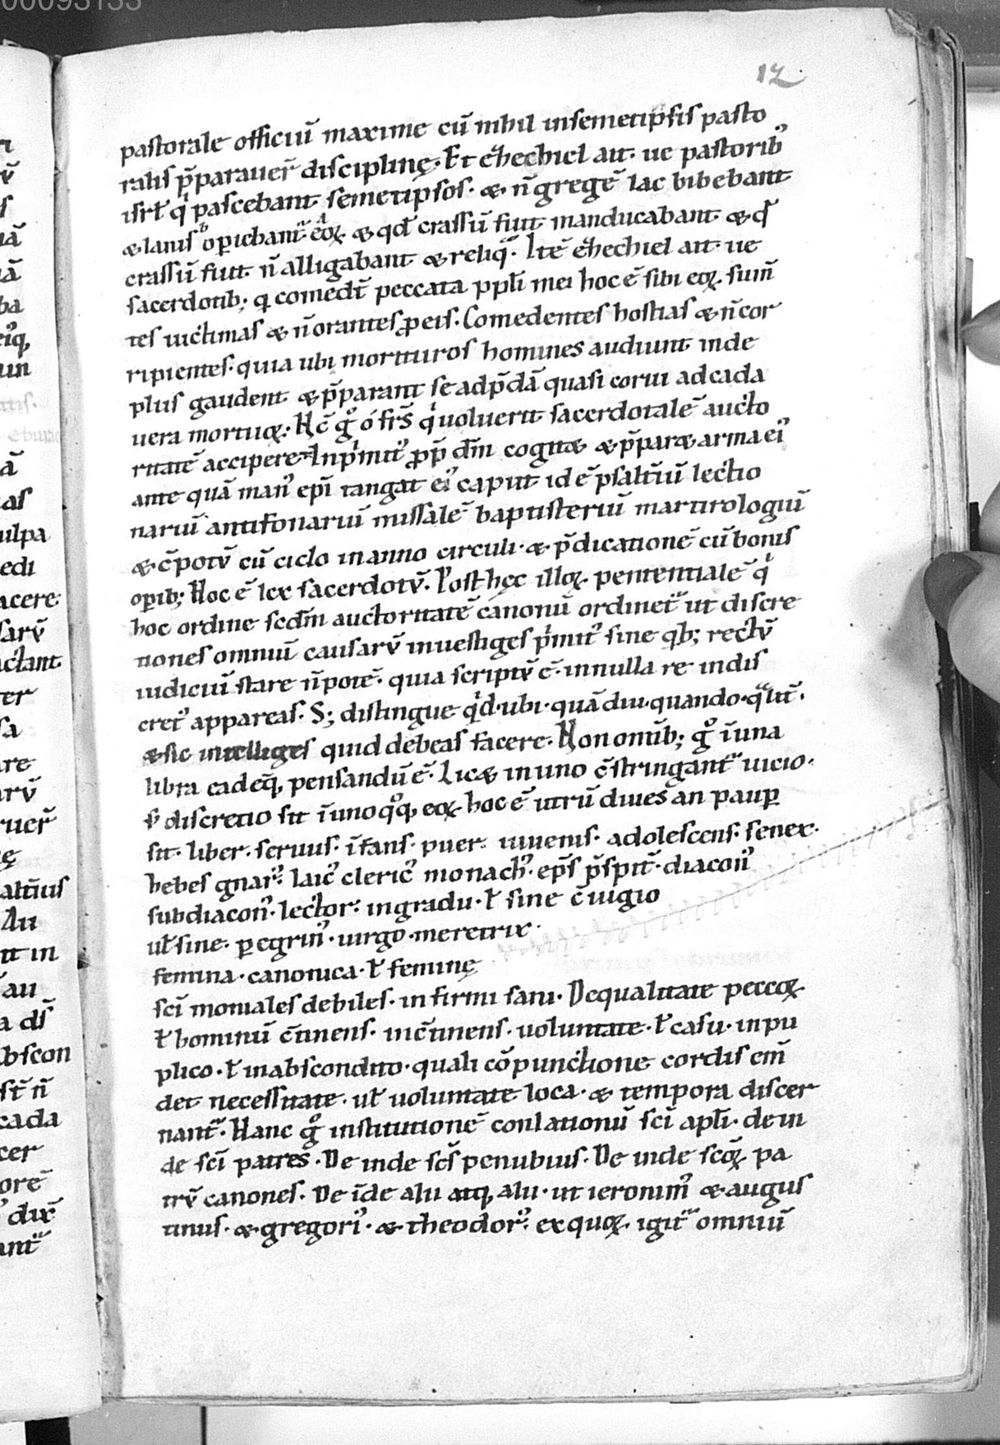 00093133
12
pastorale officiũ maxime cũ nihil insemetipsis pasto
ralis p̃parauer̃ disciplinę. Et ehechiel ait. ue pastorib᷒
isrł qͥ pascebant semetipsos. & ñ gregẽ lac bibebant
& lanis oꝑiebant᷒ eoꝝ & qđ crassũ fuit manducabant & qđ
crassũ fuit ñ alligabant & reliqͣ. Itẽ ehechiel ait ue
sacerdotib; qͥ comedt̃ peccata ppłi mei hoc ẽ sibi eoꝝ. sum̃
tes uictimas & ñ orantes ꝓ eis. Comedentes hostias & ñ cor
ripientes. quia ubi morituros homines audiunt inde
plus gaudent & p̃parant se ad p̃dã quasi corui ad cada
uera mortuoꝝ. Hc̃ gͦ o frs̃ qͥ uoluerit sacerdotalẽ aucto
ritatẽ accipere. Inpͥmit᷒ ꝓp dm̃ cogit& & p̃par& arma ei᷒
ante quã man᷒ epi tangat ei᷒ caput id ẽ psaltiũ lectio
nariũ antifonariũ missalẽ baptisteriũ martirologiũ
& c̃potũ cũ ciclo in anno circuli. & p̃dicationẽ cũ bonis
oꝑib; Hoc ẽ lex sacerdotũ. Post hęc illoꝝ. penitentialẽ qͥ
hoc ordine scdm̃ auctoritatẽ canonũ ordinet᷒ ut discre
tiones omniũ causarũ inuestiges pͥmit᷒ sine qͥb; rectũ
iudiciũ stare ñ potẽ. quia scriptũ ẽ. in nulla re indis
cret᷒ appareas. S; distingue qͥd. ubi. quã diu. quando. qͣlit̃.
& sic intelliges quid debeas facere. Non om̃ib; gͦ ĩ una
libra eadeq, pensandũ ẽ. Lic& in uno c̃stringant᷒ uicio.
s; discretio sit ĩ uno qͦq, eoꝝ. hoc ẽ utrũ diues an pauꝑ
sit. liber. seruus. ĩfans. puer. iuuenis. adolescens. senex.
hebes gnar᷒. laic᷒ cleric᷒ monach᷒. eps̃ p̃spit̃. diacon᷒
subdiacon᷒. lector. in gradu. ł sine c̃iugio
uł sine. ꝑegrin᷒. uirgo. meretrix.
femina. canonica. ł feminę
sci moniales debiles. infirmi sani. De qualitate peccoꝝ
ł hominũ c̃tinens. inc̃tinens. uoluntate. ł casu. in pu
plico. ł in abscondito. quali cõpunctione cordis em̃
det necessitate. uł uoluntate loca. & tempora discer
nant᷒. Hanc gͦ institutionẽ conlationũ sci apłi. de in
de sci patres. De inde scs̃ penubius. De inde scoꝝ pa
trũ canones. De ĩde alii atq, alii. ut ieronim᷒ & augus
tinus. & gregori᷒. & theodor᷒. ex quoꝝ. igit᷒ omniũ